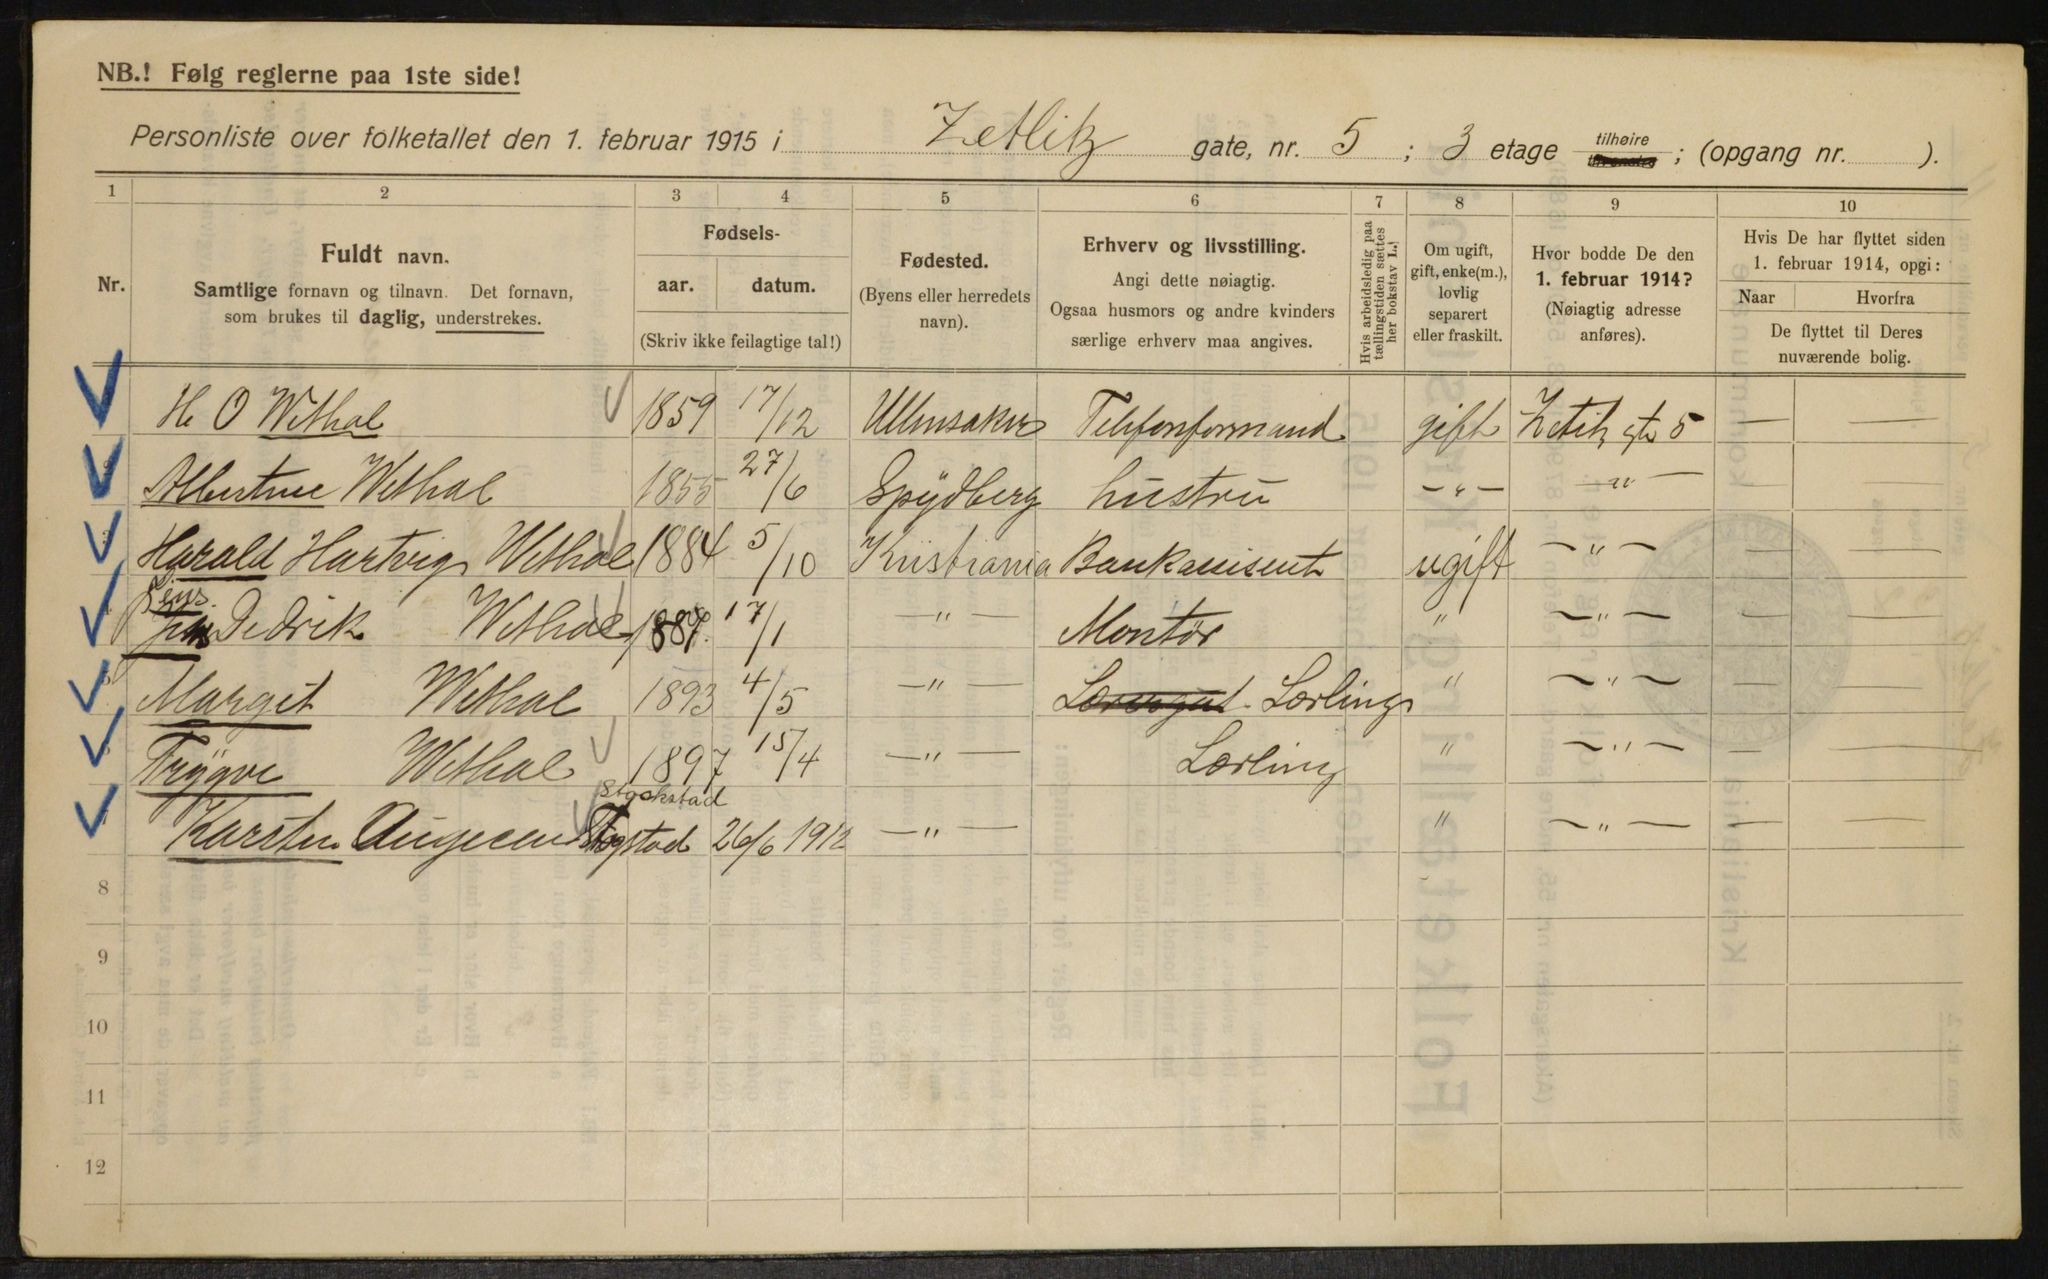 NB.! Følg reglerne paa 1ste side!
Personliste over folketallet den 1. februar 1915 i Zetlitz gate, nr. 5 ; 3 etage tilhøire ; (opgang nr. ).
1 2 3 4 5 6 7 8 9 10
Nr.
Fuldt navn.
Samtlige fornavn og tilnavn. Det fornavn,
som brukes til daglig, understrekes.
Fødsels-
aar. datum.
(Skriv ikke feilagtige tal!)
Fødested.
(Byens eller herredets
navn).
Erhverv og livsstilling.
Angi dette nøiagtig.
Ogsaa husmors og andre kvinders
særlige erhverv maa angives.
Hvis arbeidsledig paa
tællingstiden sættes
her bokstav L.!
Om ugift,
gift, enke(m.),
lovlig
separert
eller fraskilt.
Hvor bodde De den
1. februar 1914?
(Nøiagtig adresse
anføres).
Hvis De har flyttet siden
1. februar 1914, opgi:
Naar Hvorfra
De flyttet til Deres
nuværende bolig.
H. O Wethal 1859 17/12 Ullensaker Telefonformand gift Zetlitz gt 5 — —
Albertine Wethal 1855 27/6 Spydberg hustru —"— —"— — —
Harald Hartvig Wethal 1884 5/10 Kristiania Bankassisent ugift —"— — —
Jens
Dedrik Wethal 1889. 17/1 —"— Montör " —"— — —
Margit Wethal 1893 4/5 —"— Lærling " —"— — —
Trygve Wethal 1897 15/4 —"— Lærling " —"— — —
Stockstad
Karsten 26/6 1912 —"— " —"— — —
8
9
10
11
12